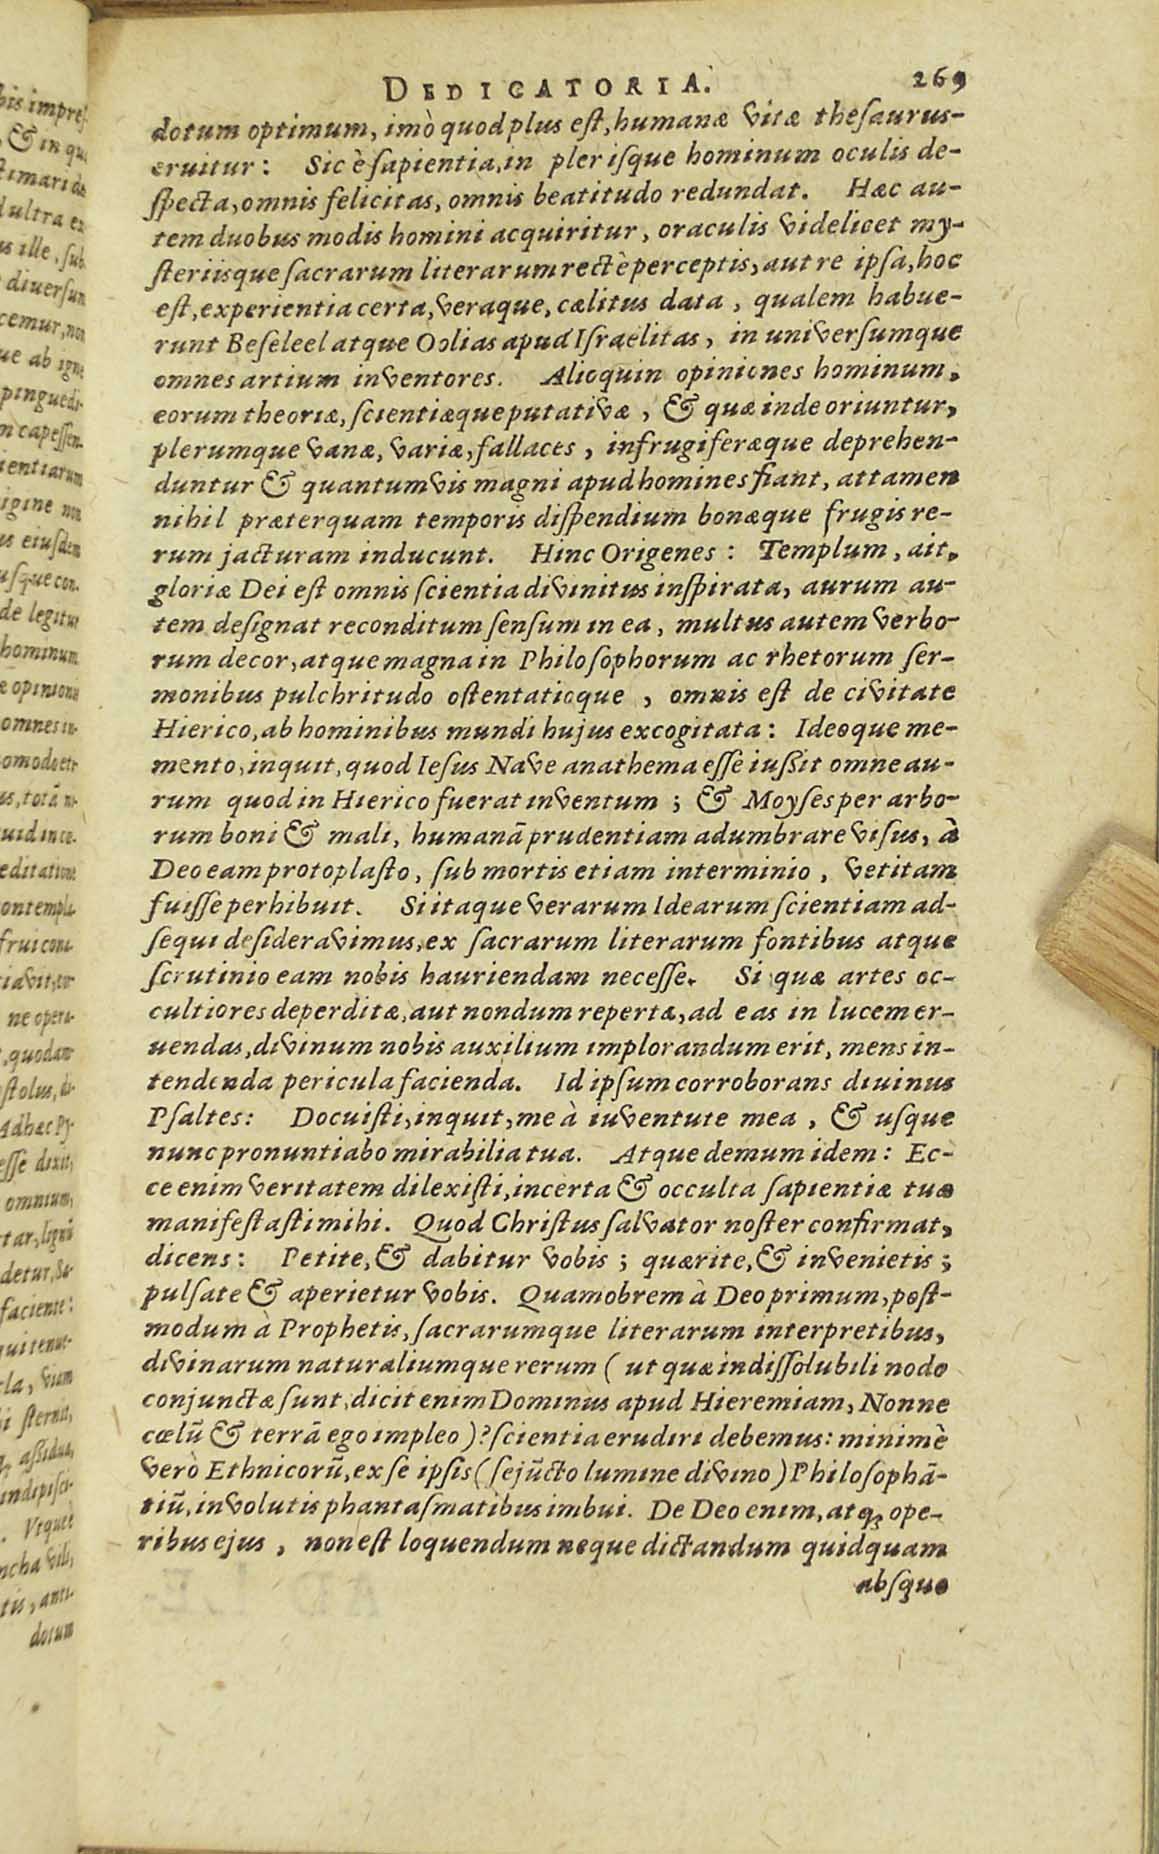 DEDICATORIA. 269
dotum optimum, imò quod plus eſt, humanæ vitæ theſaurus-
eruitur: Sic è ſapientia, in pleriſque hominum oculis de-
ſpecta, omnis felicitas, omnis beatitudo redundat. Hæc au-
tem duobus modis homini acquiritur, oraculis videlicet my-
ſteriisque ſacrarum literarum rectè perceptis, aut re ipſa, hoc
eſt, experientia certa, veraque, cælitus data, qualem habue-
runt Beſeleel atque Oolias apud Iſraelitas, in univerſumque
omnes artium inventores. Alioquin opiniones hominum,
eorum theoriæ, ſcientiæque putativæ, & quæ inde oriuntur,
plerumque vanæ, variæ, fallaces, infrugiferæque deprehen-
duntur & quantumvis magni apud homines fiant, attamen
nihil præterquam temporis diſpendium bonæque frugis re-
rum jacturam inducunt. Hinc Origenes: Templum, ait,
gloriæ Dei eſt omnis ſcientia divinitus inſpirata, aurum au-
tem deſignat reconditum ſenſum in ea, multus autem verbo-
rum decor, atque magna in Philoſophorum ac rhetorum ſer-
monibus pulchritudo oſtentatioque, omnis eſt de civitate
Hierico, ab hominibus mundi hujus excogitata: Ideoque me-
mento, inquit, quod Ieſus Nave anathema eſſe iuſſit omne au-
rum quod in Hierico fuerat inventum; & Moyſes per arbo-
rum boni & mali, humanā prudentiam adumbrare viſus, à
Deo eam protoplaſto, ſub mortis etiam interminio, vetitam
fuiſſe perhibuit. Si itaque verarum Idearum ſcientiam ad-
ſequi deſideravimus, ex ſacrarum literarum fontibus atque
ſcrutinio eam nobis hauriendam neceſſe. Si quæ artes oc-
cultiores deperditæ, aut nondum repertæ, ad eas in lucem er-
uendas, divinum nobis auxilium implorandum erit, mens in-
tendenda pericula facienda. Id ipſum corroborans diuinus
Pſaltes: Docuiſti, inquit, me à iuventute mea, & uſque
nunc pronuntiabo mirabilia tua. Atque demum idem: Ec-
ce enim veritatem dilexiſti, incerta & occulta ſapientiæ tuæ
manifeſtaſti mihi. Quod Chriſtus ſalvator noſter confirmat,
dicens: Petite, & dabitur vobis; quærite, & invenietis;
pulſate & aperietur vobis. Quamobrem à Deo primum, poſt-
modum à Prophetis, ſacrarumque literarum interpretibus,
divinarum naturaliumque rerum (ut quæ indiſſolubili nodo
conjunctæ ſunt, dicit enim Dominus apud Hieremiam, Nonne
cœlū & terrā ego impleo)? ſcientia erudiri debemus: minimè
verò Ethnicorū, ex ſe ipſis (ſejūcto lumine divino) Philoſophā-
tiū, involutis phantaſmatibus imbui. De Deo enim, atq; ope-
ribus ejus, non eſt loquendum neque dictandum quidquam
abſque